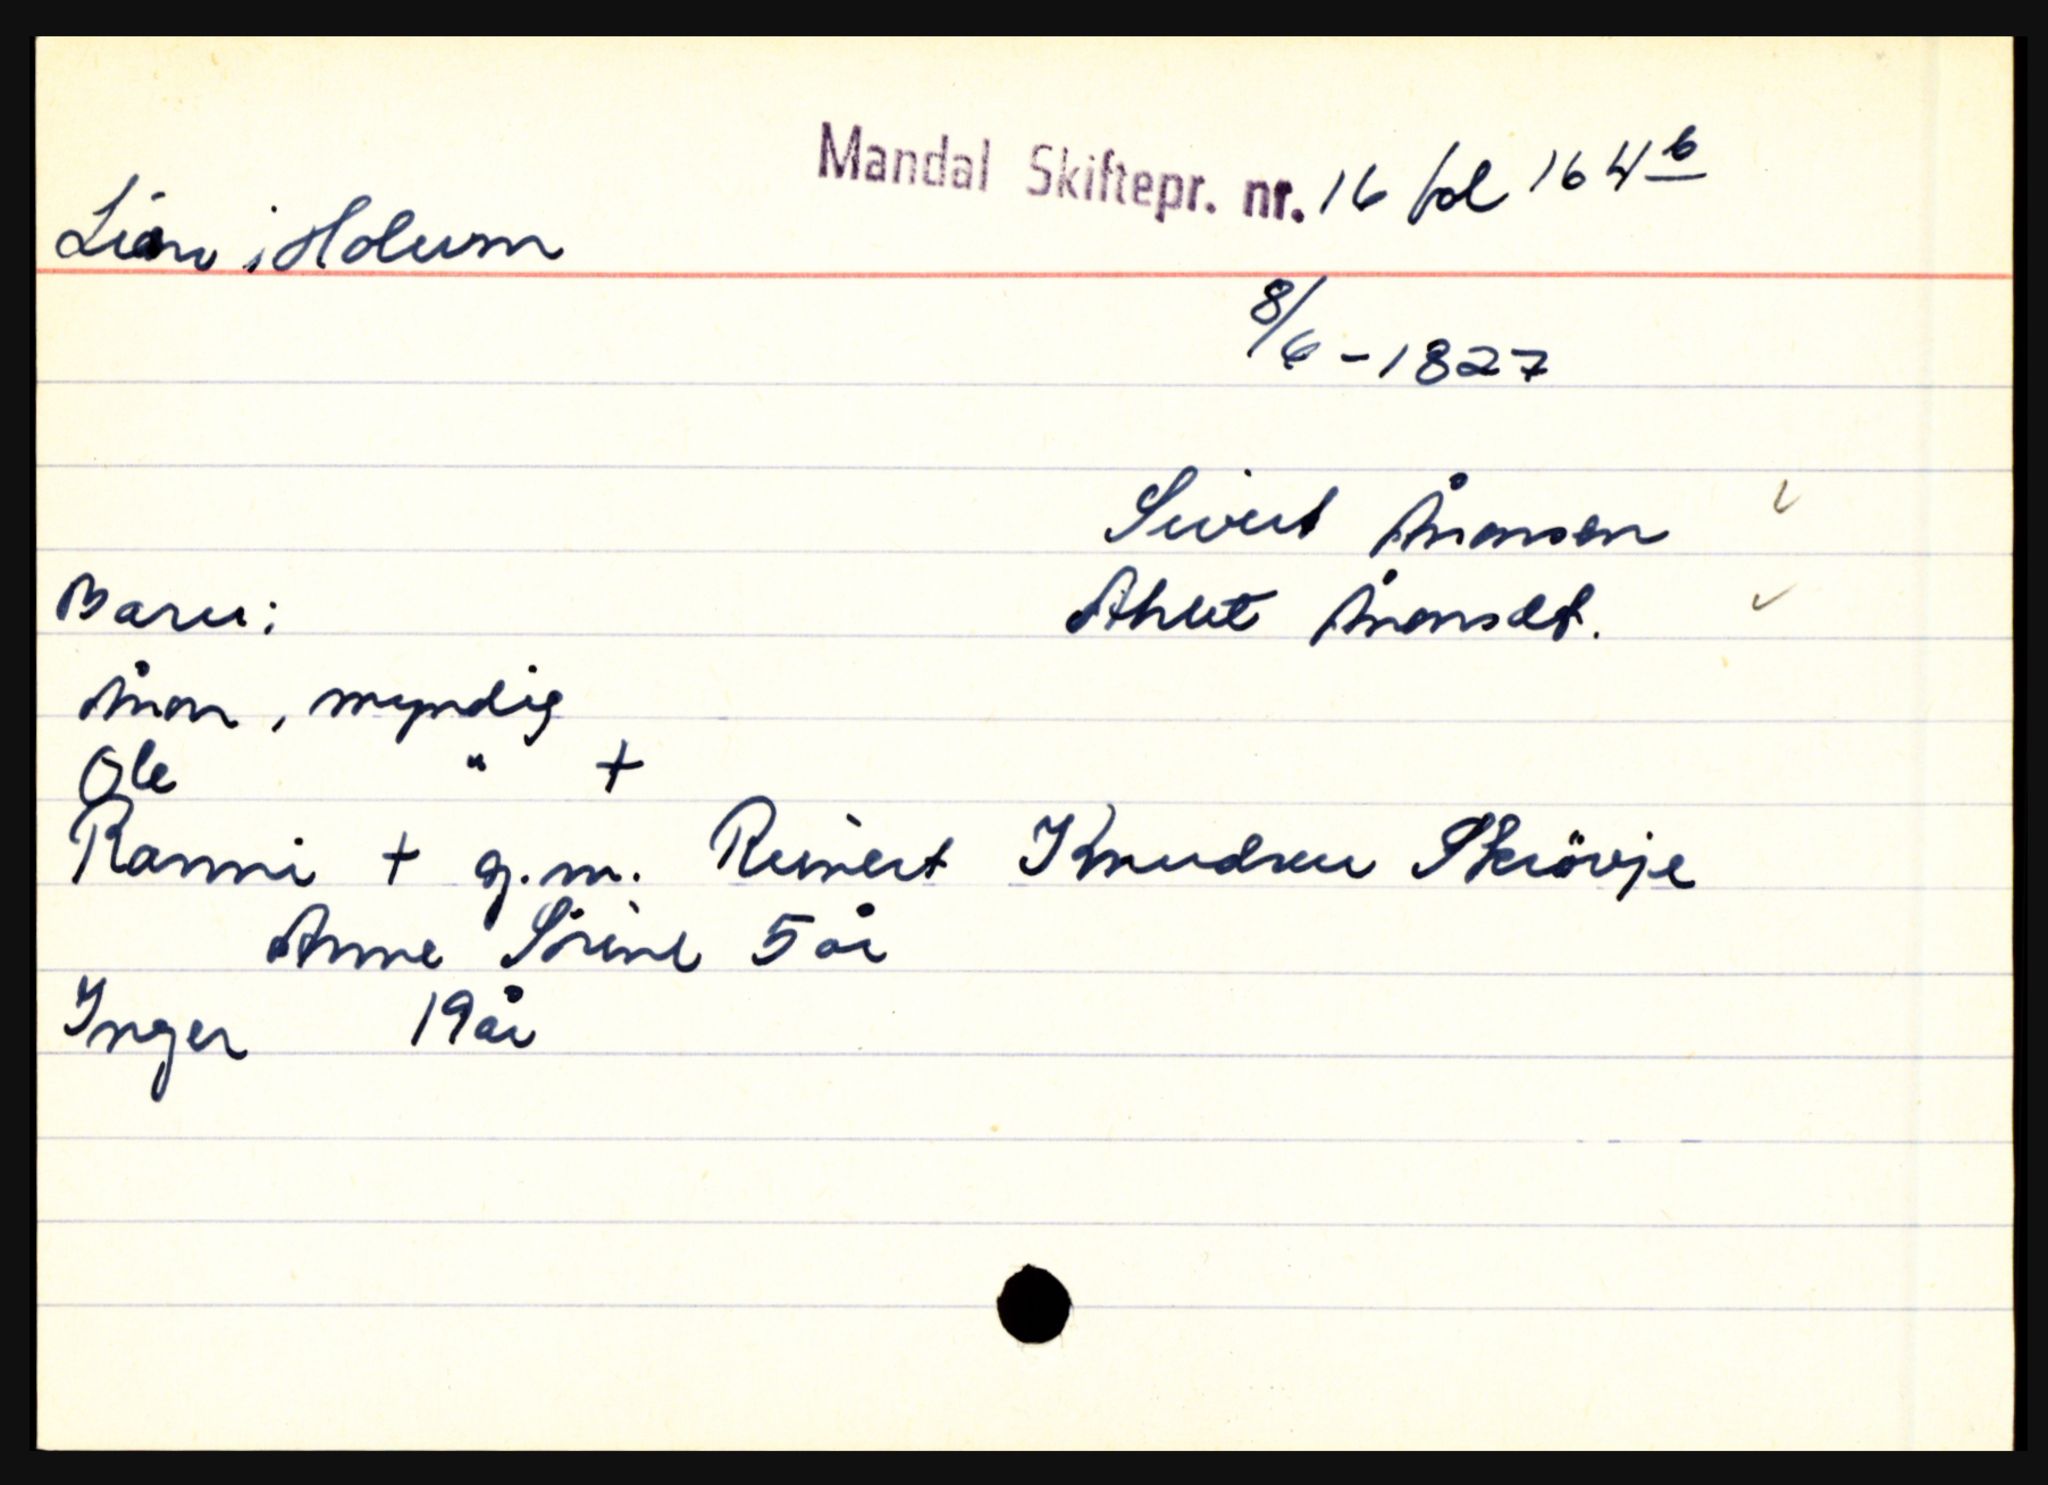 Mandal Skiftepr. nr. 16 fol 164 b
Lian i Holum
8/6 - 1827
Sivert Ånonsen
Ahlet Ånonsdt.
Barn:
Ånon, myndig
Ole " +
Ranni + g.m. Reinert Knudsen Skrövje
Anne Sörine 5 år
Inger 19 år